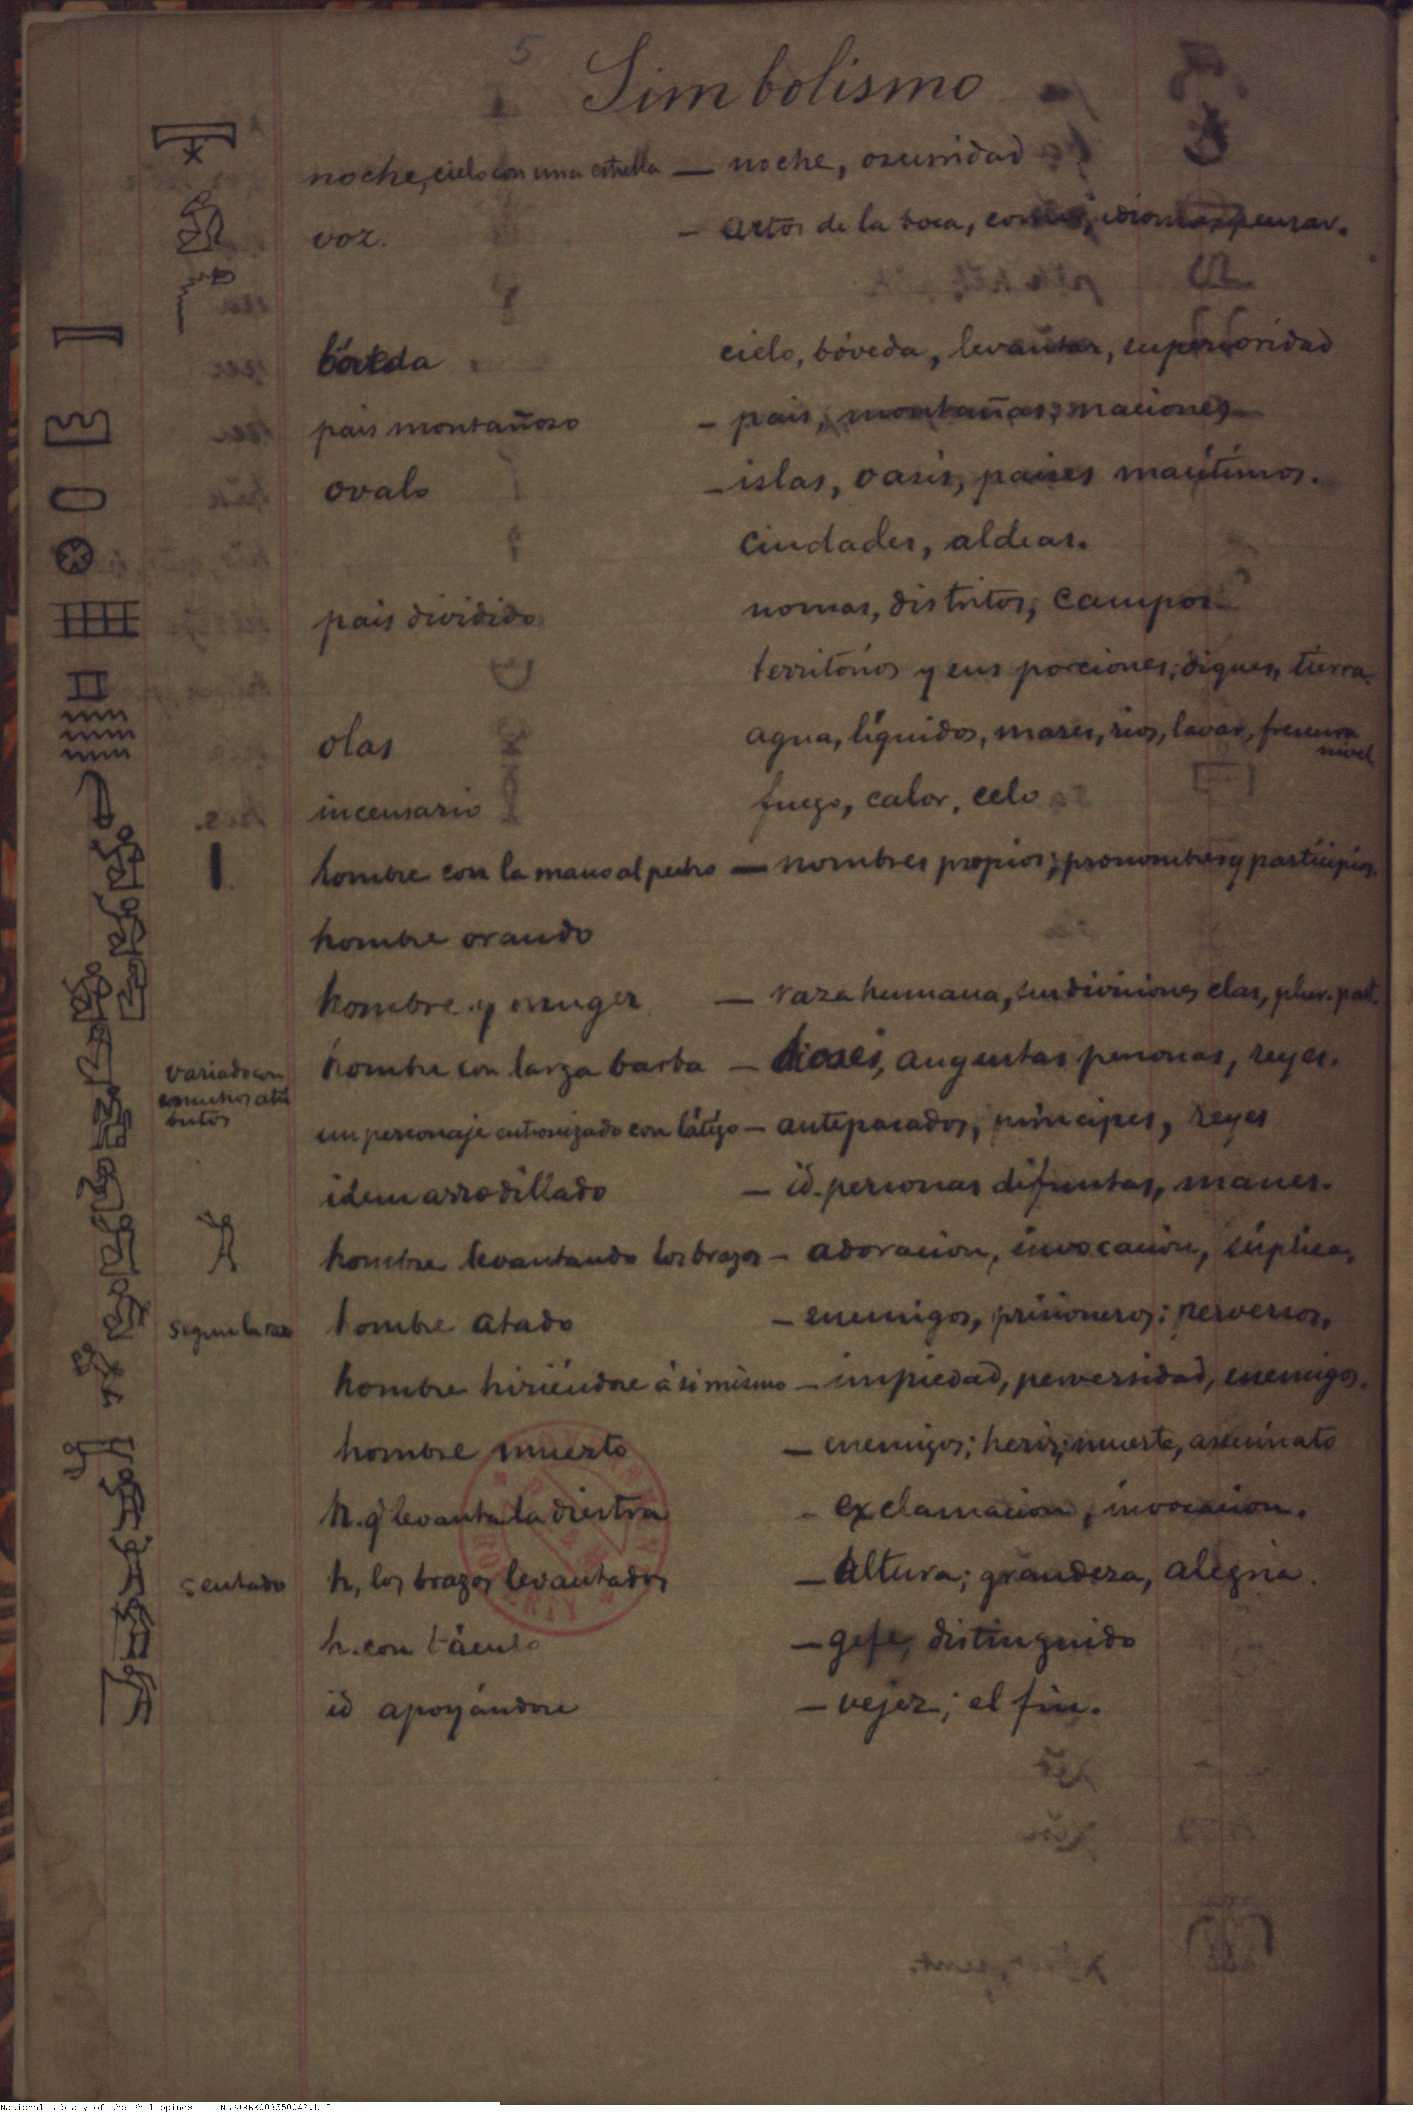 5
Simbolismo
noche, cielo con una estrella — noche, oscuridad
voz. — actos de la boca, comer, idiomas, pensar.
bóveda cielo, bóveda, levantar, superioridad
pais montañoso — pais, montañas, naciones
ovalo — islas, oasis, paises marítimos.
ciudades, aldeas.
pais dividido nomas, distritos, campos
territorios y sus porciones, diques, tierra.
olas agua, líquidos, mares, rios, lavar, frescura
nivel
incensario fuego, calor, celo
hombre con la mano al pecho — nombres propios; pronombres y participios.
hombre orando
hombre y muger — raza humana, sus divisiones, plur.
hombre con larga barba — dioses, augustas personas, reyes.
variado con
butos
un personaje entronizado con látigo — antepasados, príncipes, reyes
idem arrodillado — id. personas difuntas, manes.
hombre levantando los brazos — adoracion, invocacion, súplica.
segun la raza hombre atado — enemigos, prisioneros; perversos.
hombre hiriéndose á si mismo — impiedad, perversidad, enemigos.
hombre muerto — enemigos; herir; muerte, asesinato
h. q̃ levanta la diestra — exclamacion, invocacion.
sentado h, los brazos levantados — altura; grandeza, alegria.
h. con báculo — gefe, distinguido
id apoyándose — vejez; el fin.
National Library of the Philippines